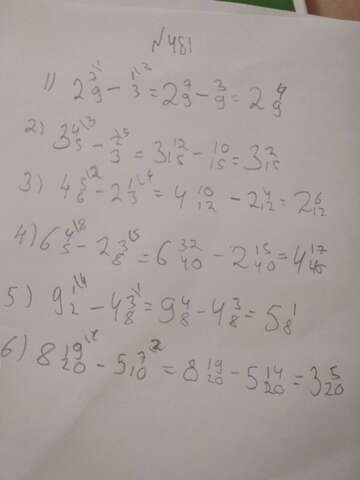 №481
1) 2 7/9 - 1/3 = 2 7/9 - 3/9 = 2 4/9
2) 3 4/5 - 2/3 = 3 12/15 - 10/15 = 3 2/15
3) 4 5/6 - 2 1/3 = 4 10/12 - 2 4/12 = 2 6/12
4) 6 4/5 - 2 3/8 = 6 32/40 - 2 15/40 = 4 17/45
5) 9 1/2 - 4 3/8 = 9 4/8 - 4 3/8 = 5 1/8
6) 8 19/20 - 5 7/10 = 8 19/20 - 5 14/20 = 3 5/20